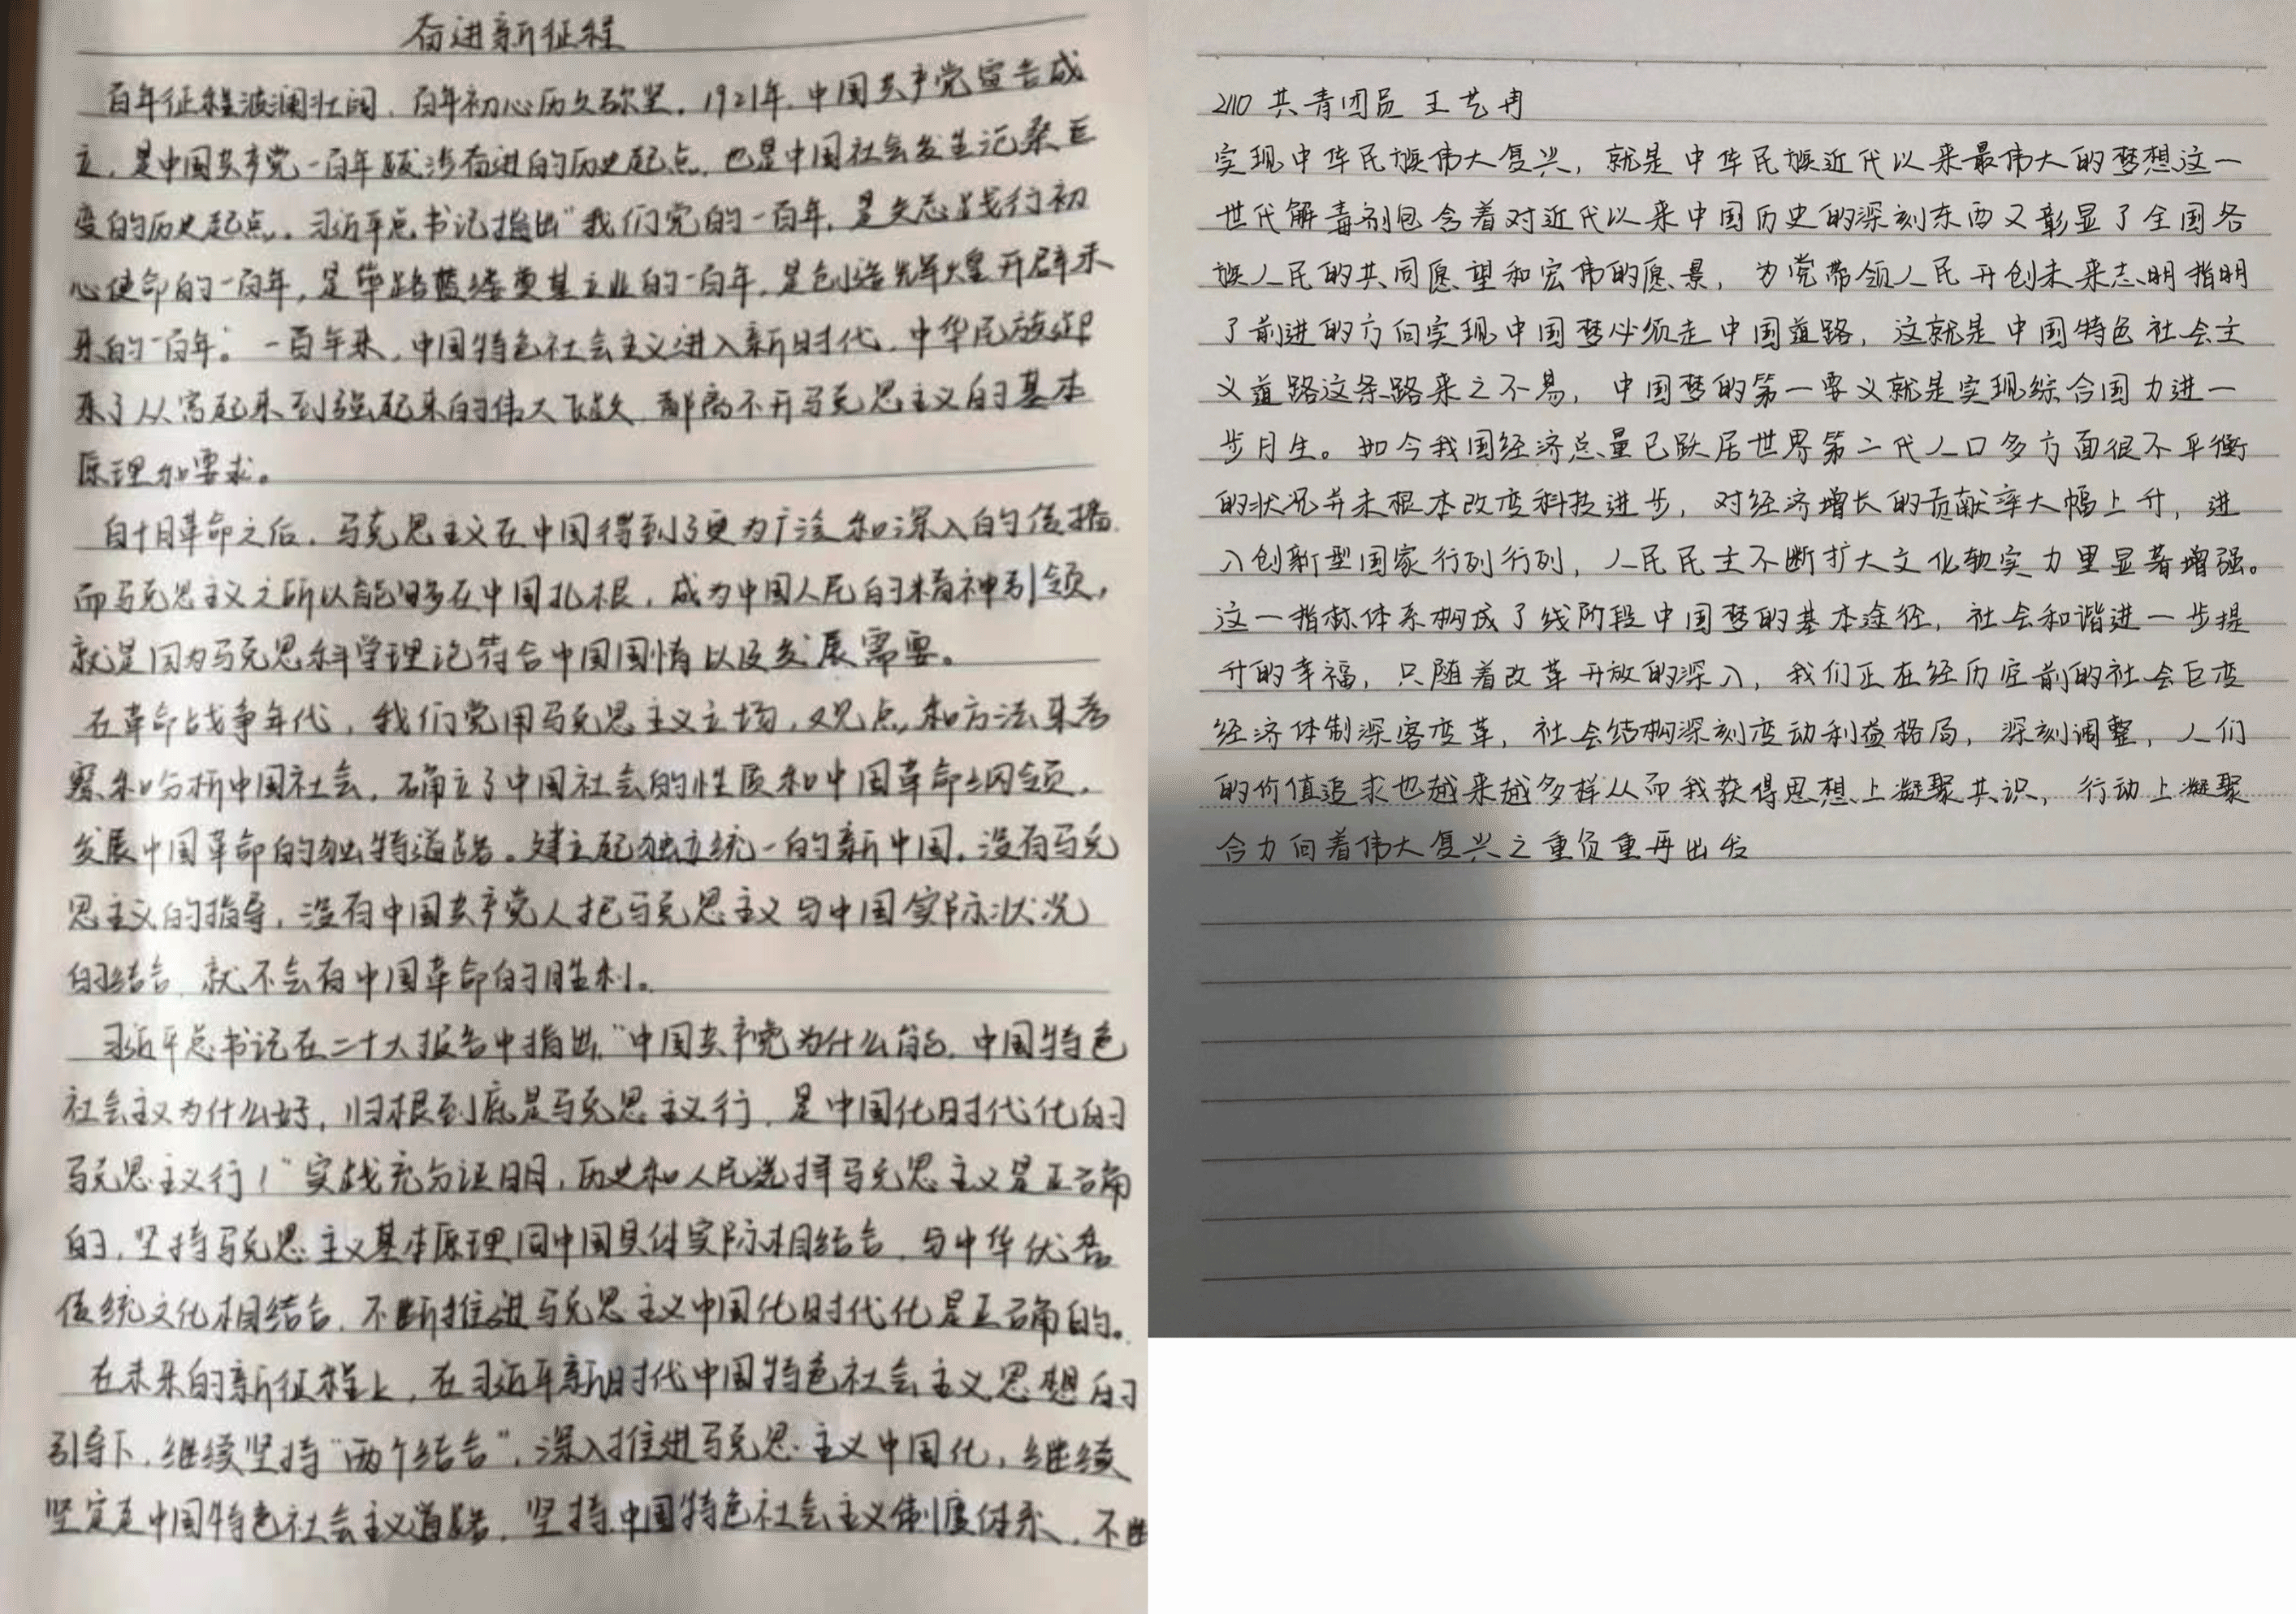 奋进新征程
百年征程波澜壮阔，百年初心历久弥坚。1921年，中国共产党宣告成
立，是中国共产党一百年跋涉奋进的历史起点，也是中国社会发生沧桑巨
变的历史起点。习近平总书记指出"我们党的一百年，是矢志践行初
心使命的一百年，是筚路蓝缕奠基立业的一百年，是创造辉煌开辟未
来的一百年。"一百年来，中国特色社会主义进入新时代，中华民族迎
来了从富起来到强起来的伟大飞跃，都离不开马克思主义的基本
原理和要求。
自十月革命之后，马克思主义在中国得到了更为广泛和深入的传播，
而马克思主义之所以能够在中国扎根，成为中国人民的精神引领，
就是因为马克思科学理论符合中国国情以及发展需要。
在革命战争年代，我们党用马克思主义立场，观点和方法来考
察和分析中国社会，确立了中国社会的性质和中国革命纲领，
发展中国革命的独特道路。建立起独立统一的新中国。没有马克
思主义的指导，没有中国共产党人把马克思主义与中国实际状况
的结合，就不会有中国革命的胜利。
习近平总书记在二十大报告中指出，"中国共产党为什么能，中国特色
社会主义为什么好，归根到底是马克思主义行，是中国化时代化的
马克思主义行！"实践充分证明，历史和人民选择马克思主义是正确
的，坚持马克思主义基本原理同中国具体实际相结合，与中华优秀
传统文化相结合，不断推进马克思主义中国化时代化是正确的。
在未来的新征程上，在习近平新时代中国特色社会主义思想的
引导下，继续坚持"两个结合"，深入推进马克思主义中国化，继续
坚定走中国特色社会主义道路，坚持中国特色社会主义制度体系，不断
2110 共青团员 王艺冉
实现中华民族伟大复兴，就是中华民族近代以来最伟大的梦想这一
世代解毒剂包含着对近代以来中国历史的深刻东西又彰显了全国各
族人民的共同愿望和宏伟的愿景，为党带领人民开创未来志明指明
了前进的方向实现中国梦必须走中国道路，这就是中国特色社会主
义道路这条路来之不易，中国梦的第一要义就是实现综合国力进一
步月生。如今我国经济总量已跃居世界第二代人口多方面很不平衡
的状况并未根本改变科技进步，对经济增长的贡献率大幅上升，进
入创新型国家行列行列，人民民主不断扩大文化软实力里显著增强。
这一指标体系构成了线阶段中国梦的基本途径，社会和谐进一步提
升的幸福，只随着改革开放的深入，我们正在经历空前的社会巨变
经济体制深客变革，社会结构深刻变动利益格局，深刻调整，人们
的价值追求也越来越多样从而我获得思想上凝聚共识，行动上凝聚
合力向着伟大复兴之重负重再出发